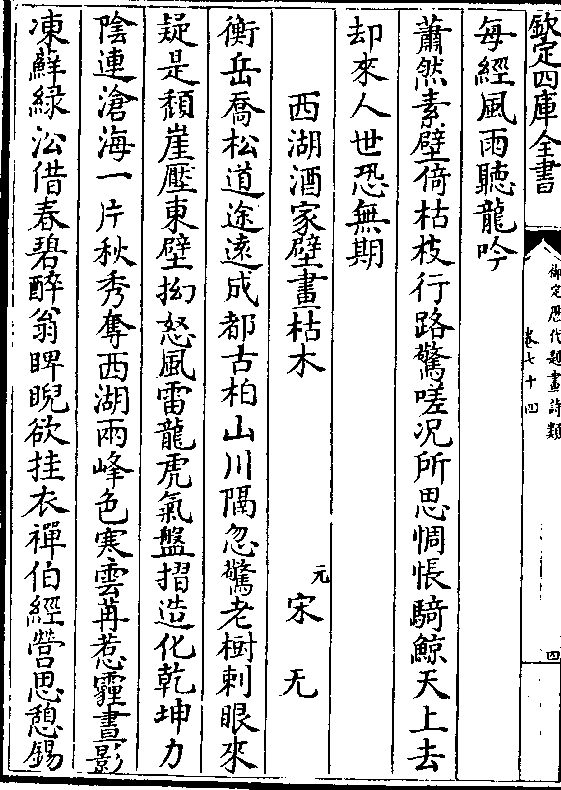 欽定四庫全書
御定歷代題畫詩類
卷七十四
四
每經風雨聽龍吟
蕭然素壁倚枯枝行路驚嗟况所思惆悵騎鯨天上去
却來人世恐無期
西湖酒家壁畫枯木
元宋无
衡岳喬松道途遠成都古柏山川隔忽驚老樹刺眼來
疑是頹崖壓東壁拗怒風雷龍虎氣盤摺造化乾坤力
陰連滄海一片秋秀奪西湖兩峰色寒雲苒惹霾晝影
凍蘚緑沿借春碧醉翁睥睨欲挂衣禪伯經營思憩錫